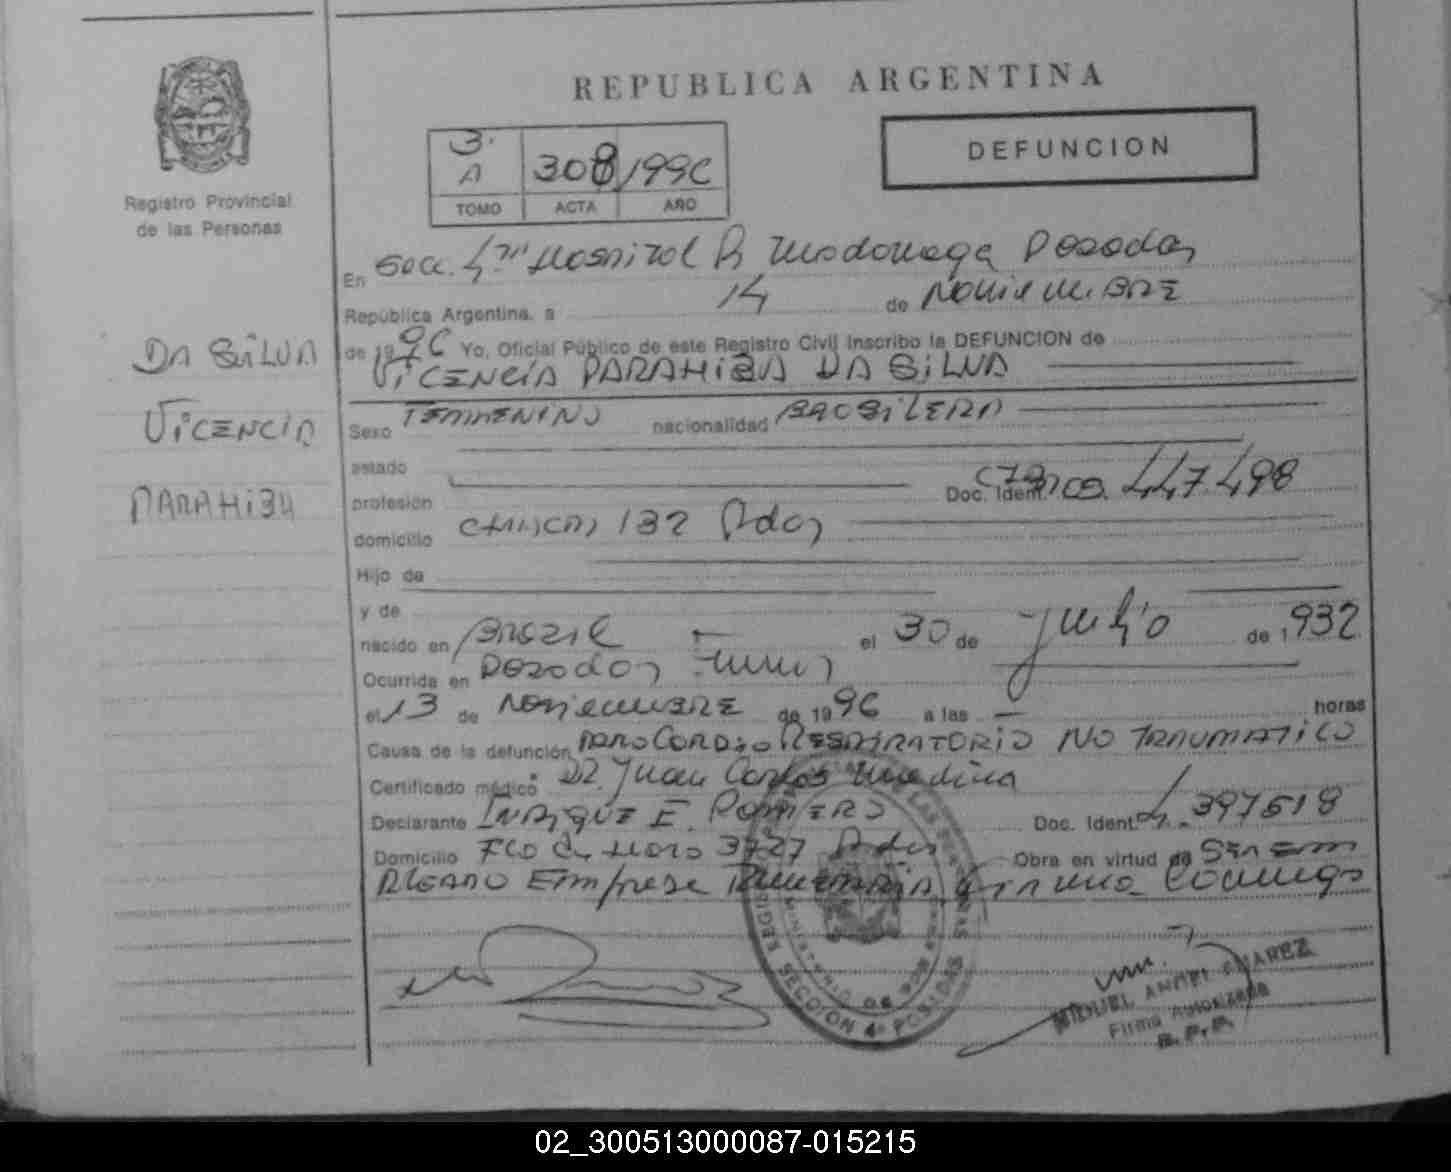 REPUBLICA ARGENTINA
DEFUNCION
3.
A 308 1996
TOMO ACTA AÑO
Registro Provincial
de las Personas
DA SILVA
VICENCIA
PARAHIBA
En Secc. 4ta Hospital R Madariaga Posadas
República Argentina, a 14 de NOVIEMBRE
de 1996 Yo, Oficial Público de este Registro Civil Inscribo la DEFUNCION de
VICENCIA PARAHIBA DA SILVA
Sexo FEMMENINO nacionalidad BRASILERA
estado
profesión Doc. Ident. 447.498
domicilio 132 Pdas
Hijo de
y de
nacido en Brazil el 30 de Julio de 1.932
Ocurrida en Posadas
el 13 de NOVIEMBRE de 1996 a las — horas
Causa de la defunción PARO CARDIO RESPIRATORIO NO TRAUMATICO
Certificado médico Dr. Juan Carlos Medina
Declarante ENRIQUE E. ROMERO Doc. Ident. 4.397618
Domicilio FCO de Haro 3727 Pdas Obra en virtud de SER EM
PLEADO Empresa FUNERARIA
REGISTRO DE LAS PERSONAS
MINISTERIO DE GOB
SECCION 4ª POSADAS
MIGUEL ANGEL SUAREZ
Firma Autorizada
R. P. P.
02_300513000087-015215